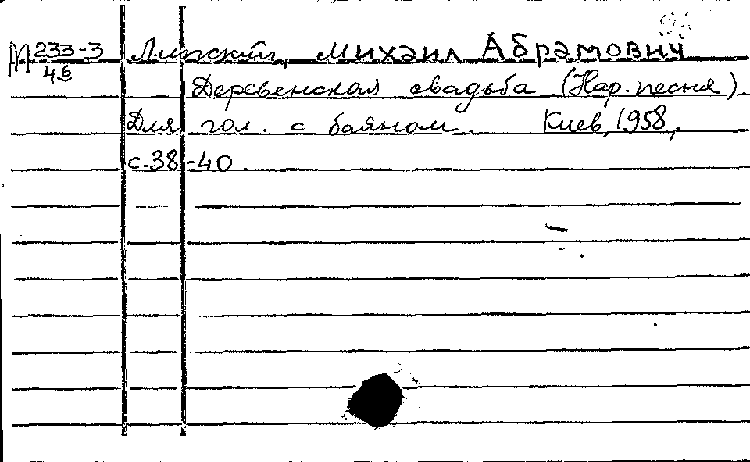 М 233-3 Липский, Михаил Абрамович
46 Деревенская свадьба (Нар. песня)
Для гол. с баяном. Киев, 1958,
с. 38-40.